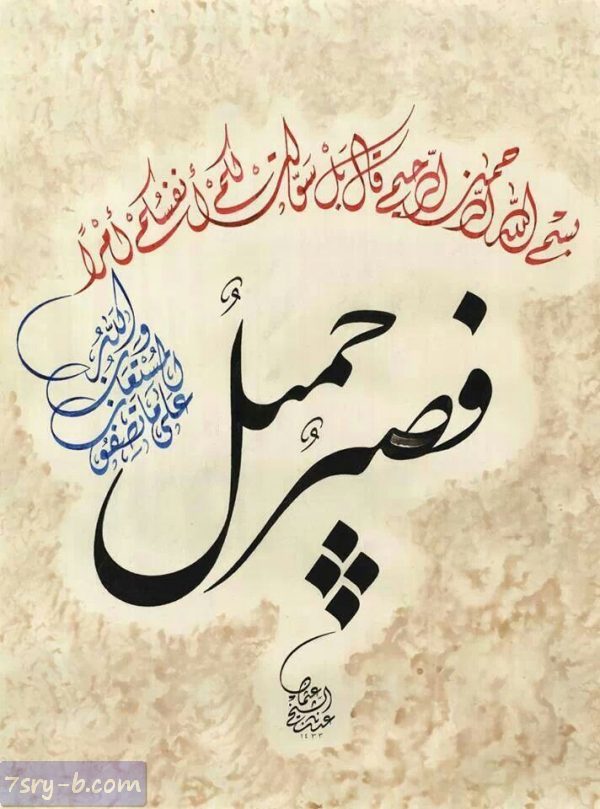 بِسْمِ اللَّهِ الرَّحمنِ الرَّحيمِ قَالَ بَلْ سَوَّلَتْ لَكُمْ أَنفُسُكُمْ أَمْرًا
فَصَبْرٌ جَمِيلٌ
وَاللَّهُ
الْمُسْتَعَانُ
عَلَى مَا تَصِفُونَ
عدنان الشيخ عثمان
١٤٣٣
7sry-b.com